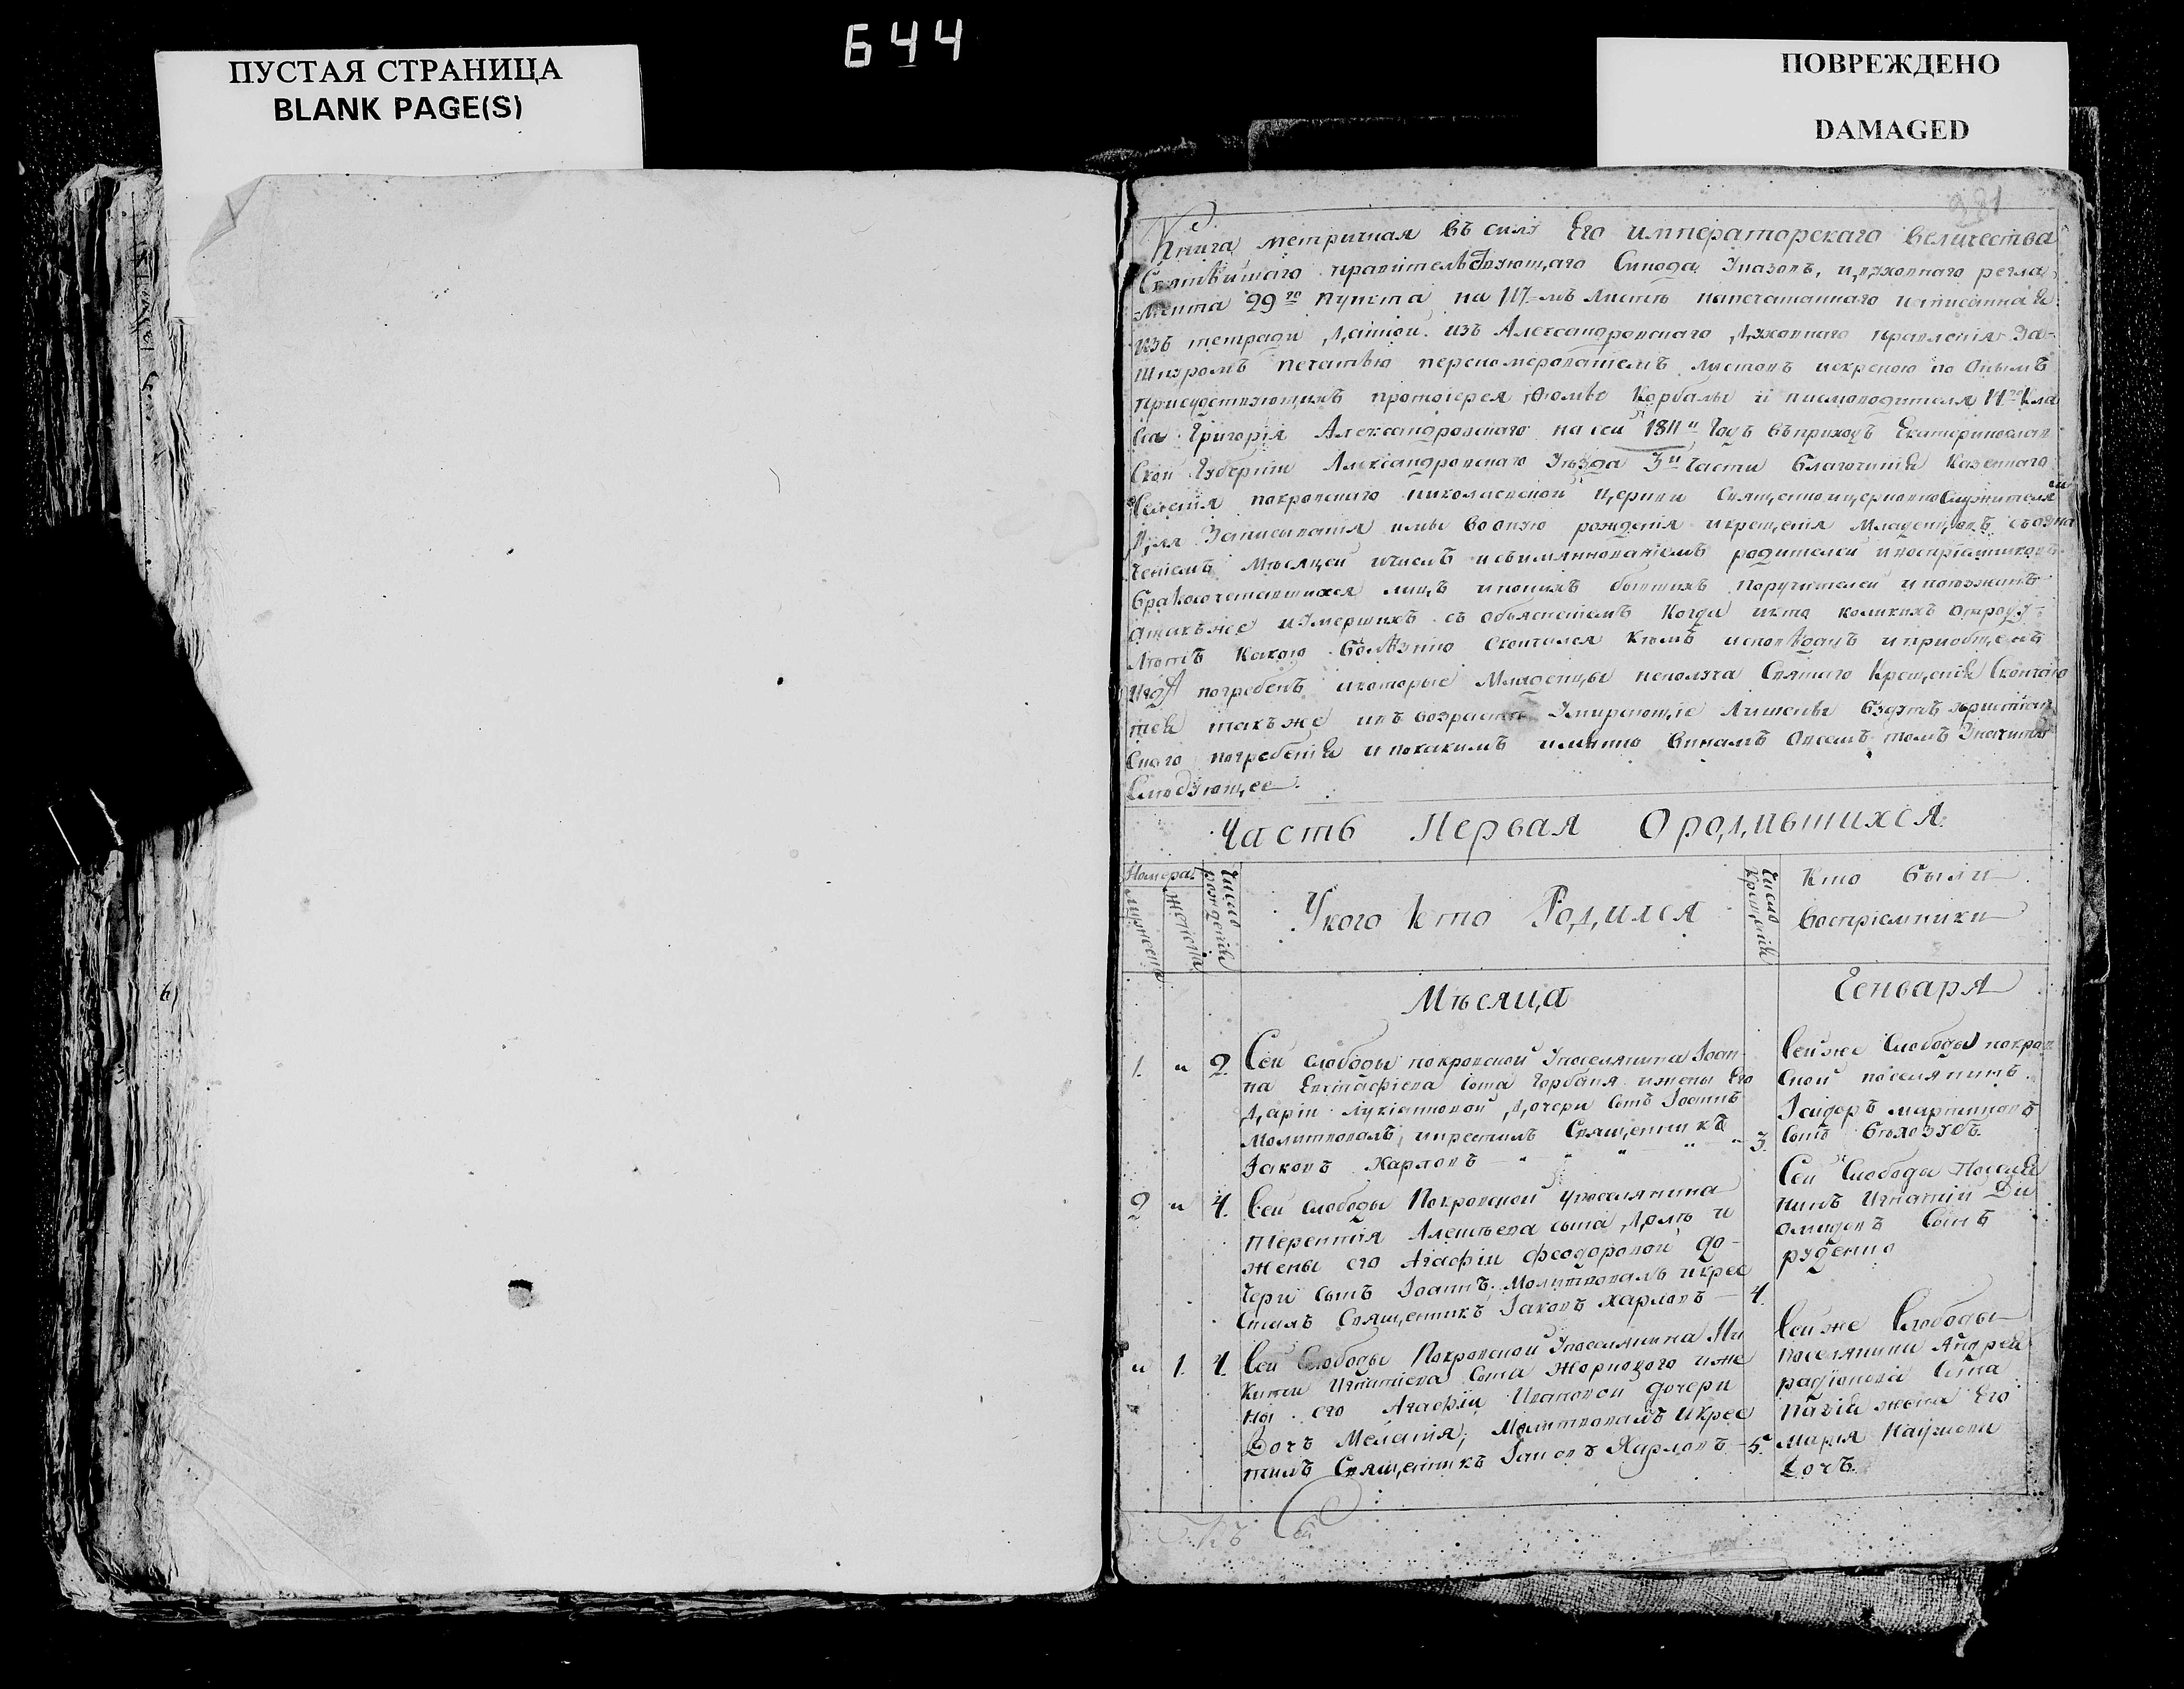 644
ПУСТАЯ СТРАНИЦА
BLANK PAGE(S)
ПОВРЕЖДЕНО
DAMAGED
381
Книга метричная въ силу Его императорскаго величества
Святѣйшаго правительствующаго Синода Указовъ, и духовнаго регла-
мента 29го пункта на 117-мъ листѣ напечатаннаго написанная
изъ тетради данной изъ Александровскаго духовнаго правления За
шнуромъ печатью перенумерованіемъ листовъ и скрепою по Онымъ
присудствующихъ протоіерея Фомы Корбалы и писмоводителя 14го Кла
са Григорія Александровскаго на сей 1811й Годъ въ приходъ Екатеринослав
Ской Губерніи Александровскаго Уезда 3й части благочинія Казеннаго
Селенія покровского николаевской церкви Священноицерковнослужителя
Для Записыванія имы во оную рожденія и крещенія Младенцовъ съ озна
ченіемъ Мѣсяцей ичислъ исъимяннованіемъ родителей и воспріемниковъ
бракосочетавшихся лицъ ипонихъ бывшихъ поручителей
и Умершихъ съ объясненіемъ Когда икто коликихъ отроду
Лѣтъ Какою болѣзнію Скончался Кѣмъ исповѣданъ ипріобщенъ
Игдѣ погребенъ икоторые Младенцы неполуча Святаго Крещенія Скончаю
тся также ивъ возрастѣ Умирающіе Лишены будутъ христіан
скаго погребенія и покакимъ имянно винамъ Овсемъ томъ Значитъ
Слѣдующее.
Часть Первая Ородившихся
Номера
мужеска
женска
число рожденія
Укого Кто Родился
число Крещенія
Кто были
воспріемники
Мѣсяца Генваря
1. „ 2. Сей слободы покровской Упоселянина Іоан
на Евстафіева сына Горбаня ижены Его
Даріи Лукіановой Дочери сынъ Іоаннъ
Молитвовалъ, икрестилъ Священникъ
Іаковъ Харловъ 3.
Сейже Слободы покров
ской поселянинъ
Ісидоръ мартиновъ
Сынъ Бѣлозубъ.
2 „ 4. Сей слободы Покровской Упоселянина
Терентія Алексѣева сына и
жены его Агафіи Феодоровой до-
чери сынъ Іоаннъ Молитвовалъ икрес
стилъ Священникъ Іаковъ Харловъ 4.
Сей Слободы Поселя
нинъ Игнатій Ди
омидовъ Сынъ
руденко
„ 1. 4. Сей Слободы Покровской Упоселянина Ни
киты Игнатіева Сына Жорнового иже
ны его Агафіи Ивановой дочери
Дочь Меланія, Молитвовалъ Икрес
тилъ Священникъ Іаковъ Харловъ 5.
Сейже Слободы
поселянина Андрея
радіонова Сына
жена Его
Марія Наумова
Дочь.